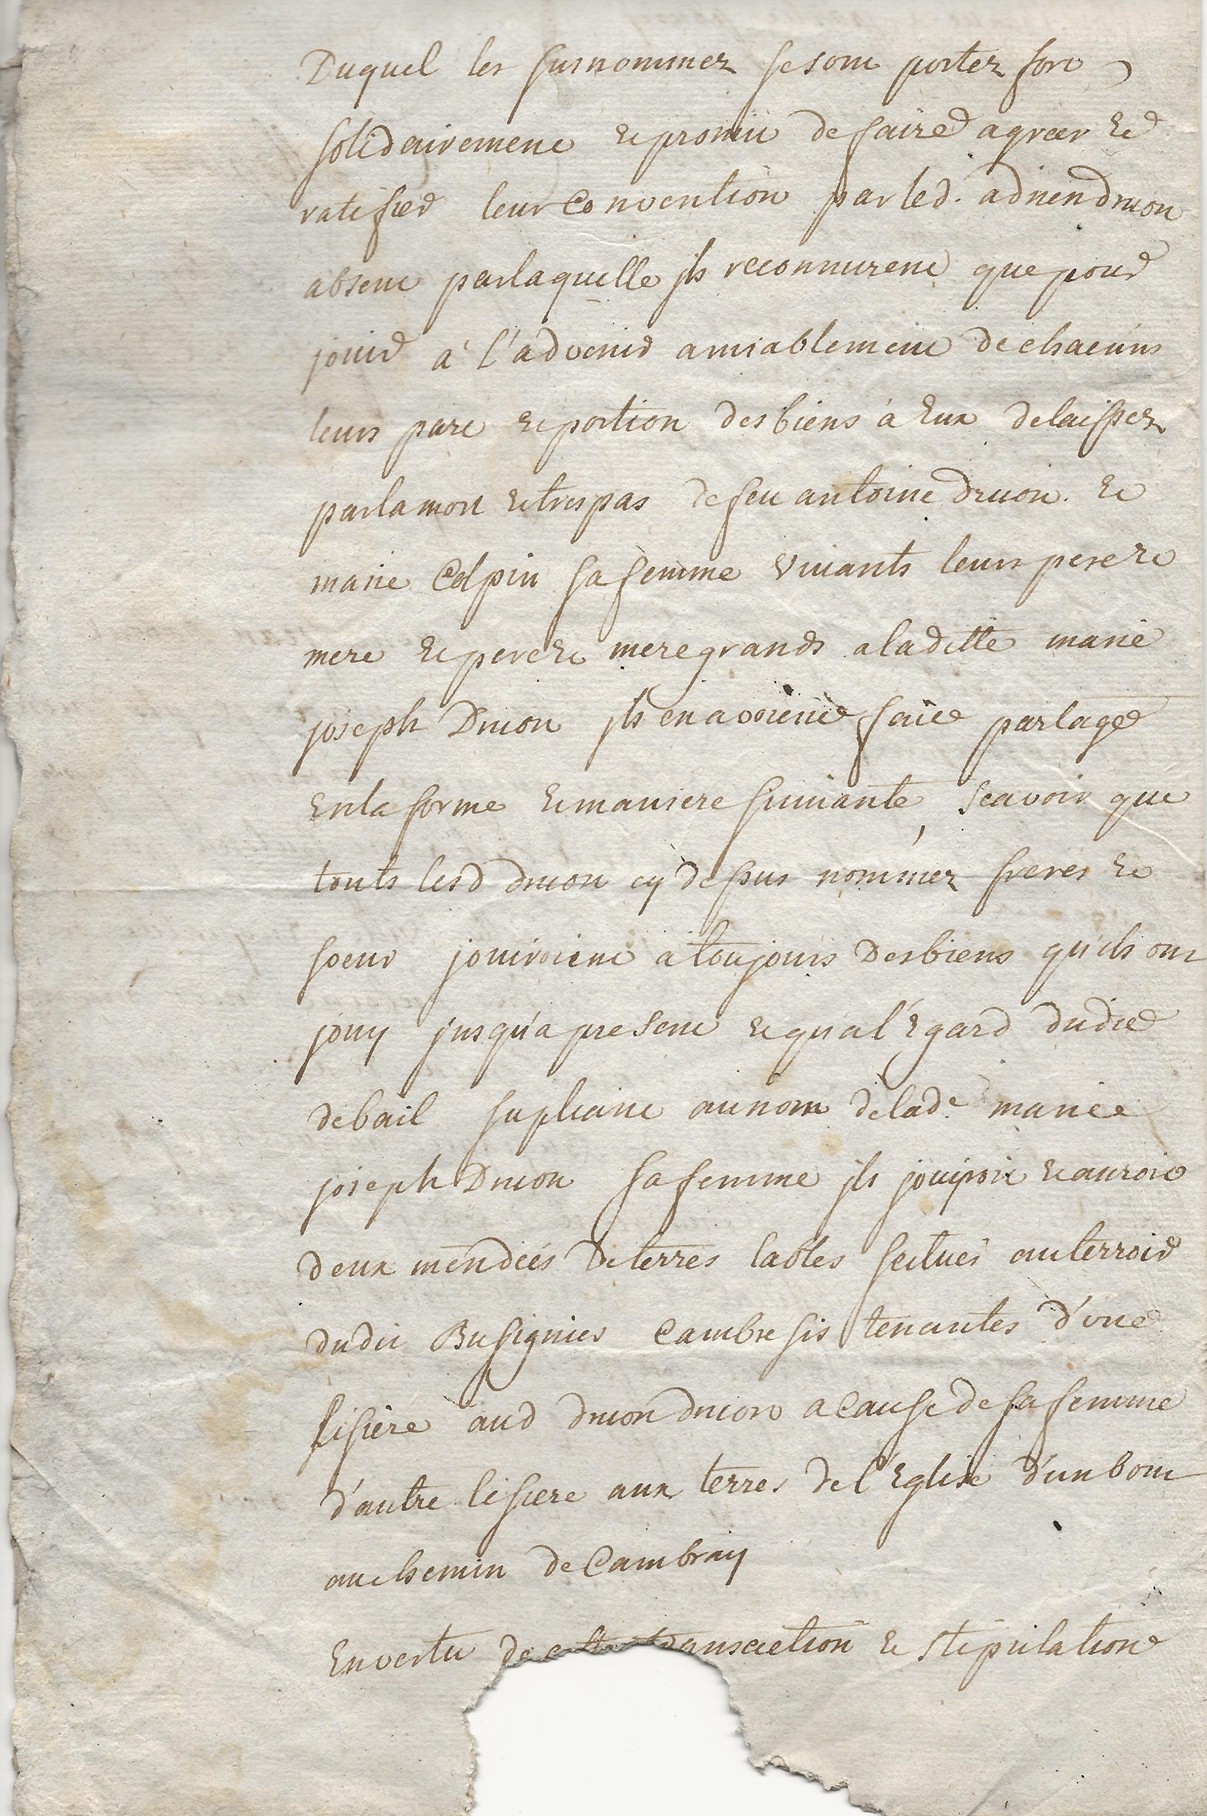 Duquel les susnommez se sont portez fort
solidairement et promis de faire agreer et
ratifier leur Convention par led. adrien druon
absent par laquelle jls reconnurent que pour
jouir à l'advenir amiablement de chacuns
leurs part et portion des biens à Eux delaissez
par la mort et trespas de feu antoine druon. Et
marie Colpin sa femme vivants leurs pere et
mere et pere et mere grands a laditte marie
joseph Druon jls en avoient fait partage
En la forme et maniere suivante, scavoir que
touts lesd druon cy dessus nommez freres et
soeur jouiroient a toujours des biens qu'ils ont
jouy jusqu'a present et qu'a l'Egard dudit
debail supliant au nom de lade marie
joseph Druon sa femme jls jouiroit et auroit
deux mendées de terres lables scituées au terroir
dudit Busignies Cambresis tenantes d'une
lisiere aud druon druon a cause de sa femme
d'autre lisiere aux terres de l'Eglise d'un bout
au chemin de Cambray
En vertu de cette transaction et stipulation